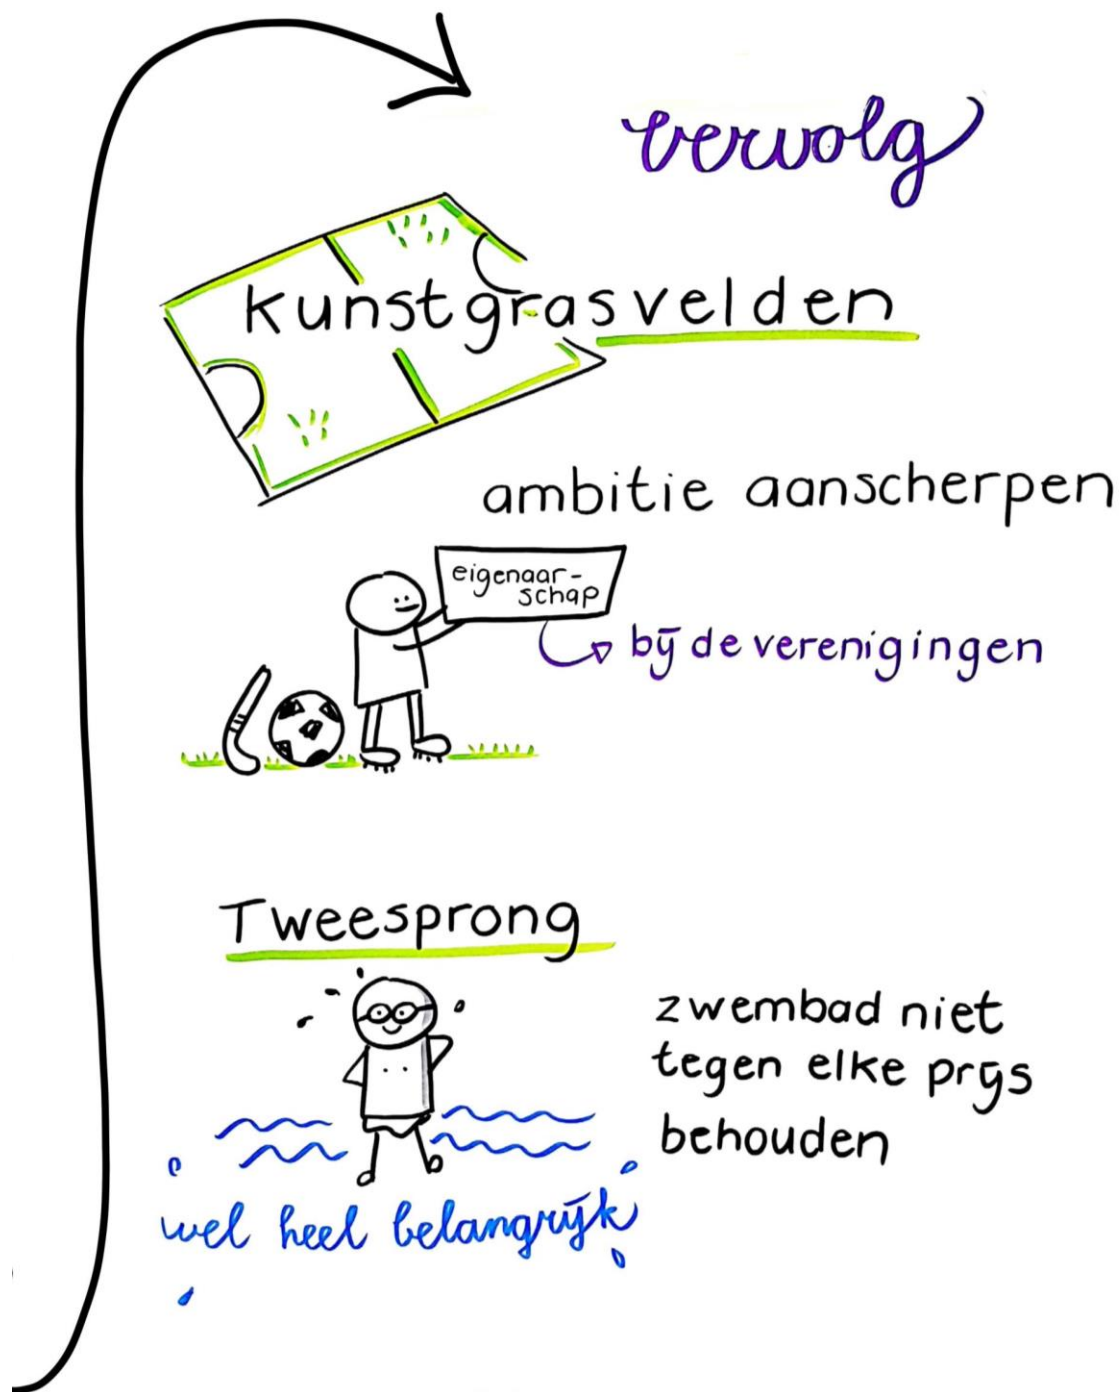 vervolg
kunstgrasvelden
ambitie aanscherpen
eigenaar-
schap
bij de verenigingen
Tweesprong
zwembad niet
tegen elke prijs
behouden
wel heel belangrijk